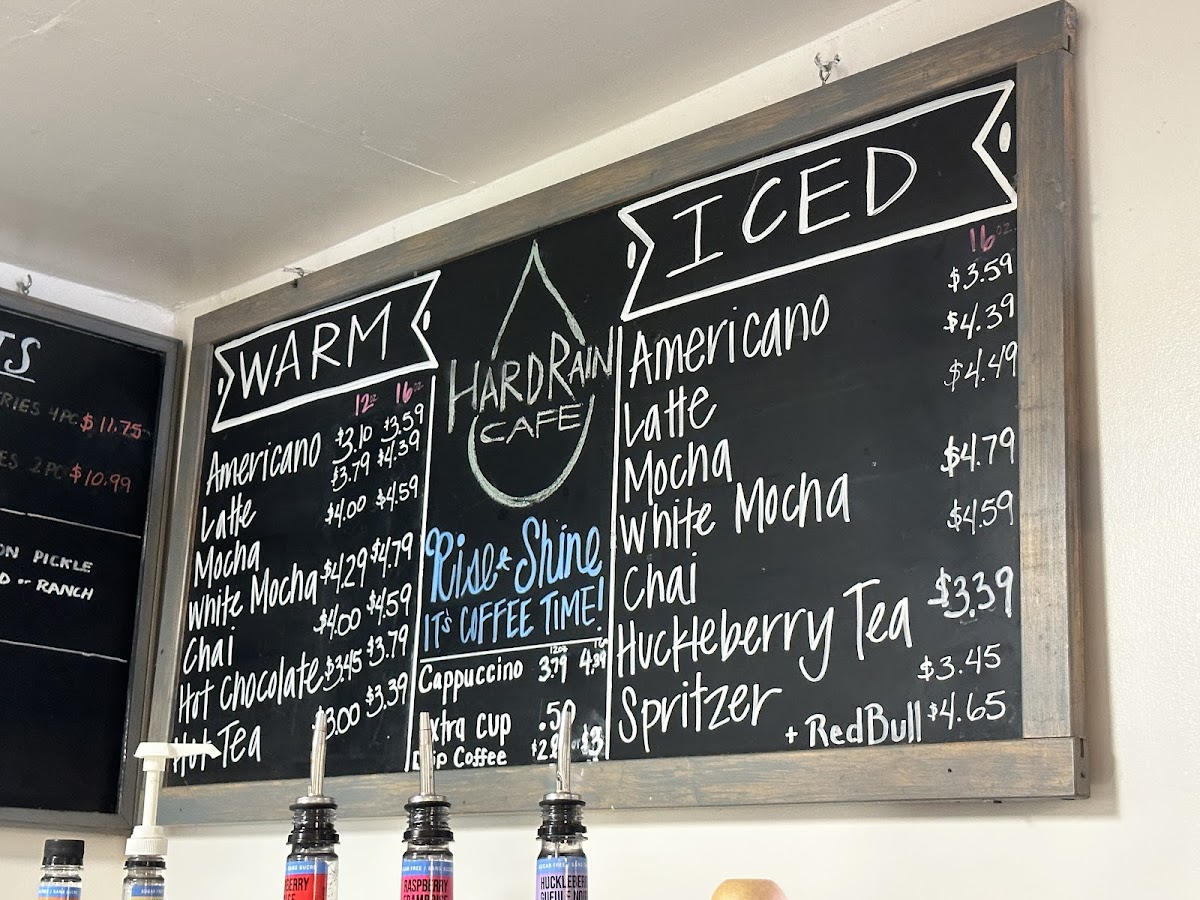 TS
4PC $11.75
2PC $10.99
PICKLE
or RANCH
WARM
12oz 16oz
Americano $3.10 $3.59
Latte $3.79 $4.39
Mocha $4.00 $4.59
White Mocha $4.29 $4.79
Chai $4.00 $4.59
Hot Chocolate $3.45 $3.79
Hot Tea $3.00 $3.39
HARD RAIN
CAFE
Rise & Shine
IT's COFFEE TIME!
12oz
Cappuccino 3.79 4.39
Extra Cup .50
Drip Coffee
ICED
16oz
Americano $3.59
Latte $4.39
Mocha $4.49
White Mocha $4.79
Chai $4.59
Huckleberry Tea $3.39
Spritzer $3.45
+ RedBull $4.65
RASPBERRY